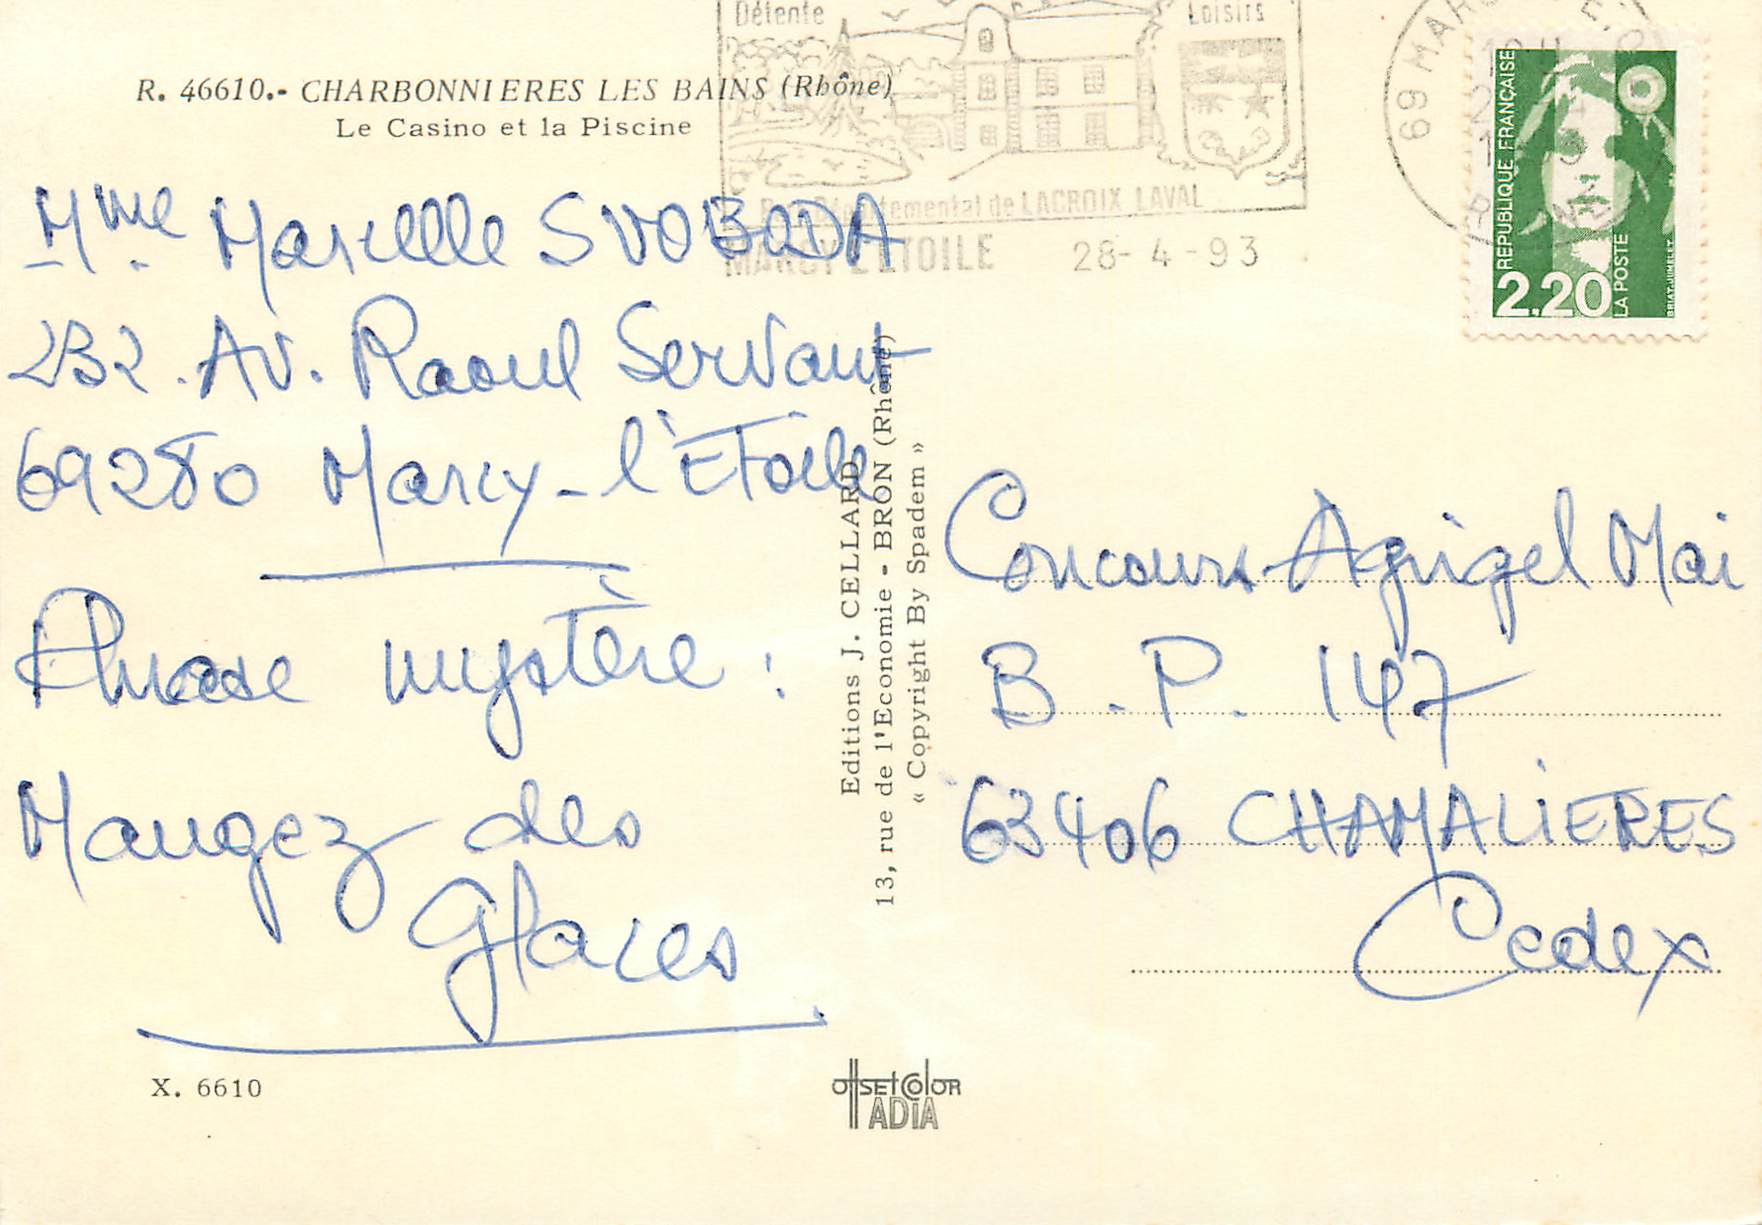 Détente
Loisirs
R. 46610.- CHARBONNIERES LES BAINS (Rhône)
Le Casino et la Piscine
de LACROIX LAVAL
MARCY L'ETOILE 28-4-93
69 MAR
REPUBLIQUE FRANÇAISE
2.20
LA POSTE
BRIAT-JUMELET
Mme Marcelle SVOBODA
232. Av. Raoul Servant
69280 Marcy-l'Etoile
Phrase mystère :
Mangez des
Glaces
Editions J. CELLARD
13, rue de l'Economie - BRON (Rhône)
« Copyright By Spadem »
Concours Agrigel Mai
B.P. 147
63406 CHAMALIERES
Cedex
X. 6610
offset color
ADIA